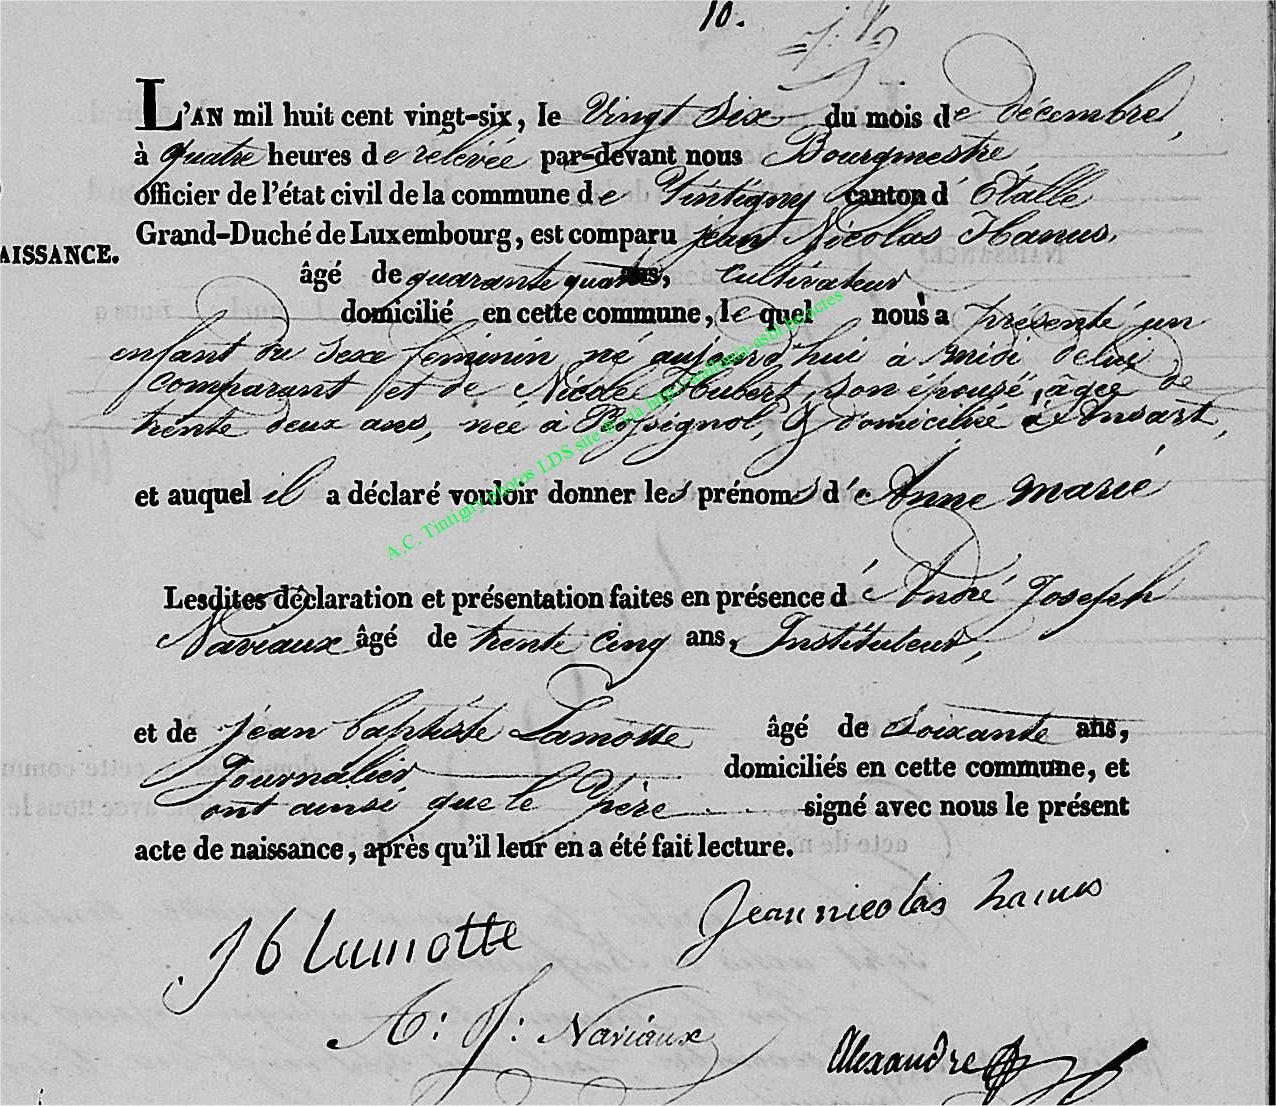 10.
L'AN mil huit cent vingt-six, le Vingt Six du mois de décembre,
à quatre heures de relevée par-devant nous Bourgmestre
officier de l'état civil de la commune de Tintigny canton d' Etalle
Grand-Duché de Luxembourg, est comparu jean Nicolas Hanus,
AISSANCE.
âgé de quarante quatre ans, Cultivateur
domicilié en cette commune, le quel nous a présenté un
enfant du sexe feminin né aujourd'hui à midi de lui
comparant et de Nicole Hubert, son épouse, âgée de
trente deux ans, née à Rossignol, & domiciliée à Ansart,
et auquel il a déclaré vouloir donner les prénoms d' Anne marie
A.C. Tintigny photos LDS site © via http://wallonia-asbl.be/actes
Lesdites déclaration et présentation faites en présence d' André Joseph
Naviaux âgé de trente cinq ans, Instituteur,
et de jean baptiste Lamotte âgé de soixante ans,
Journalier domiciliés en cette commune, et
ont ainsi que le père signé avec nous le présent
acte de naissance, après qu'il leur en a été fait lecture.
Jean nicolas hanus
J b lamotte
A: J: Naviaux
Alexandre